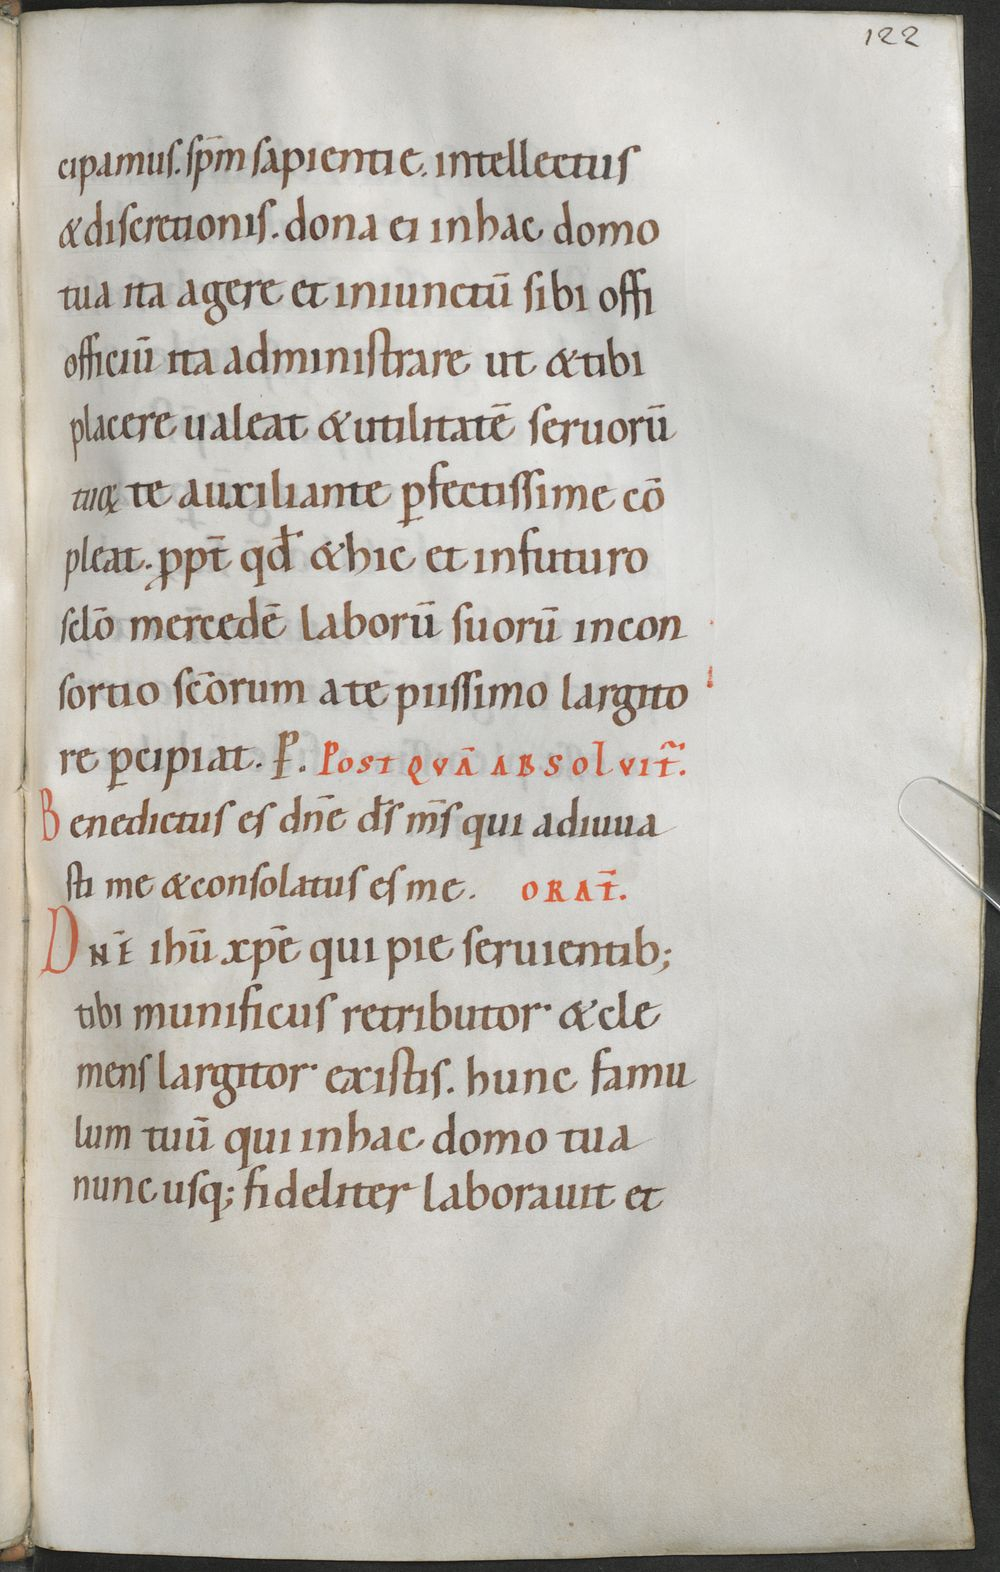 122
cipamus. sp̄m sapientie. intellectus
&discretionis. dona ei inhac domo
tua ita agere et iniunctū sibi offi
officiū ita administrare ut &tibi
placere ualeat &utilitatē seruorū
tuoꝝ te auxiliante ꝑfectissime cō
pleat. ꝓpt̄ qđ &hic et infuturo
sclō mercedē laborū suorū incon
sortio sc̄orum a te piissimo largito
re ꝑcipiat. P̄. Postquā absoluit᷑.
Benedictus es dn̄e d̄s m̄s qui adiuua
sti me &consolatus es me. ORAT̄.
DN̄E ihū xp̄e qui pie seruientib;
tibi munificus retributor &cle
mens largitor existis. hunc famu
lum tuū qui inhac domo tua
nunc usq; fideliter laborauit et